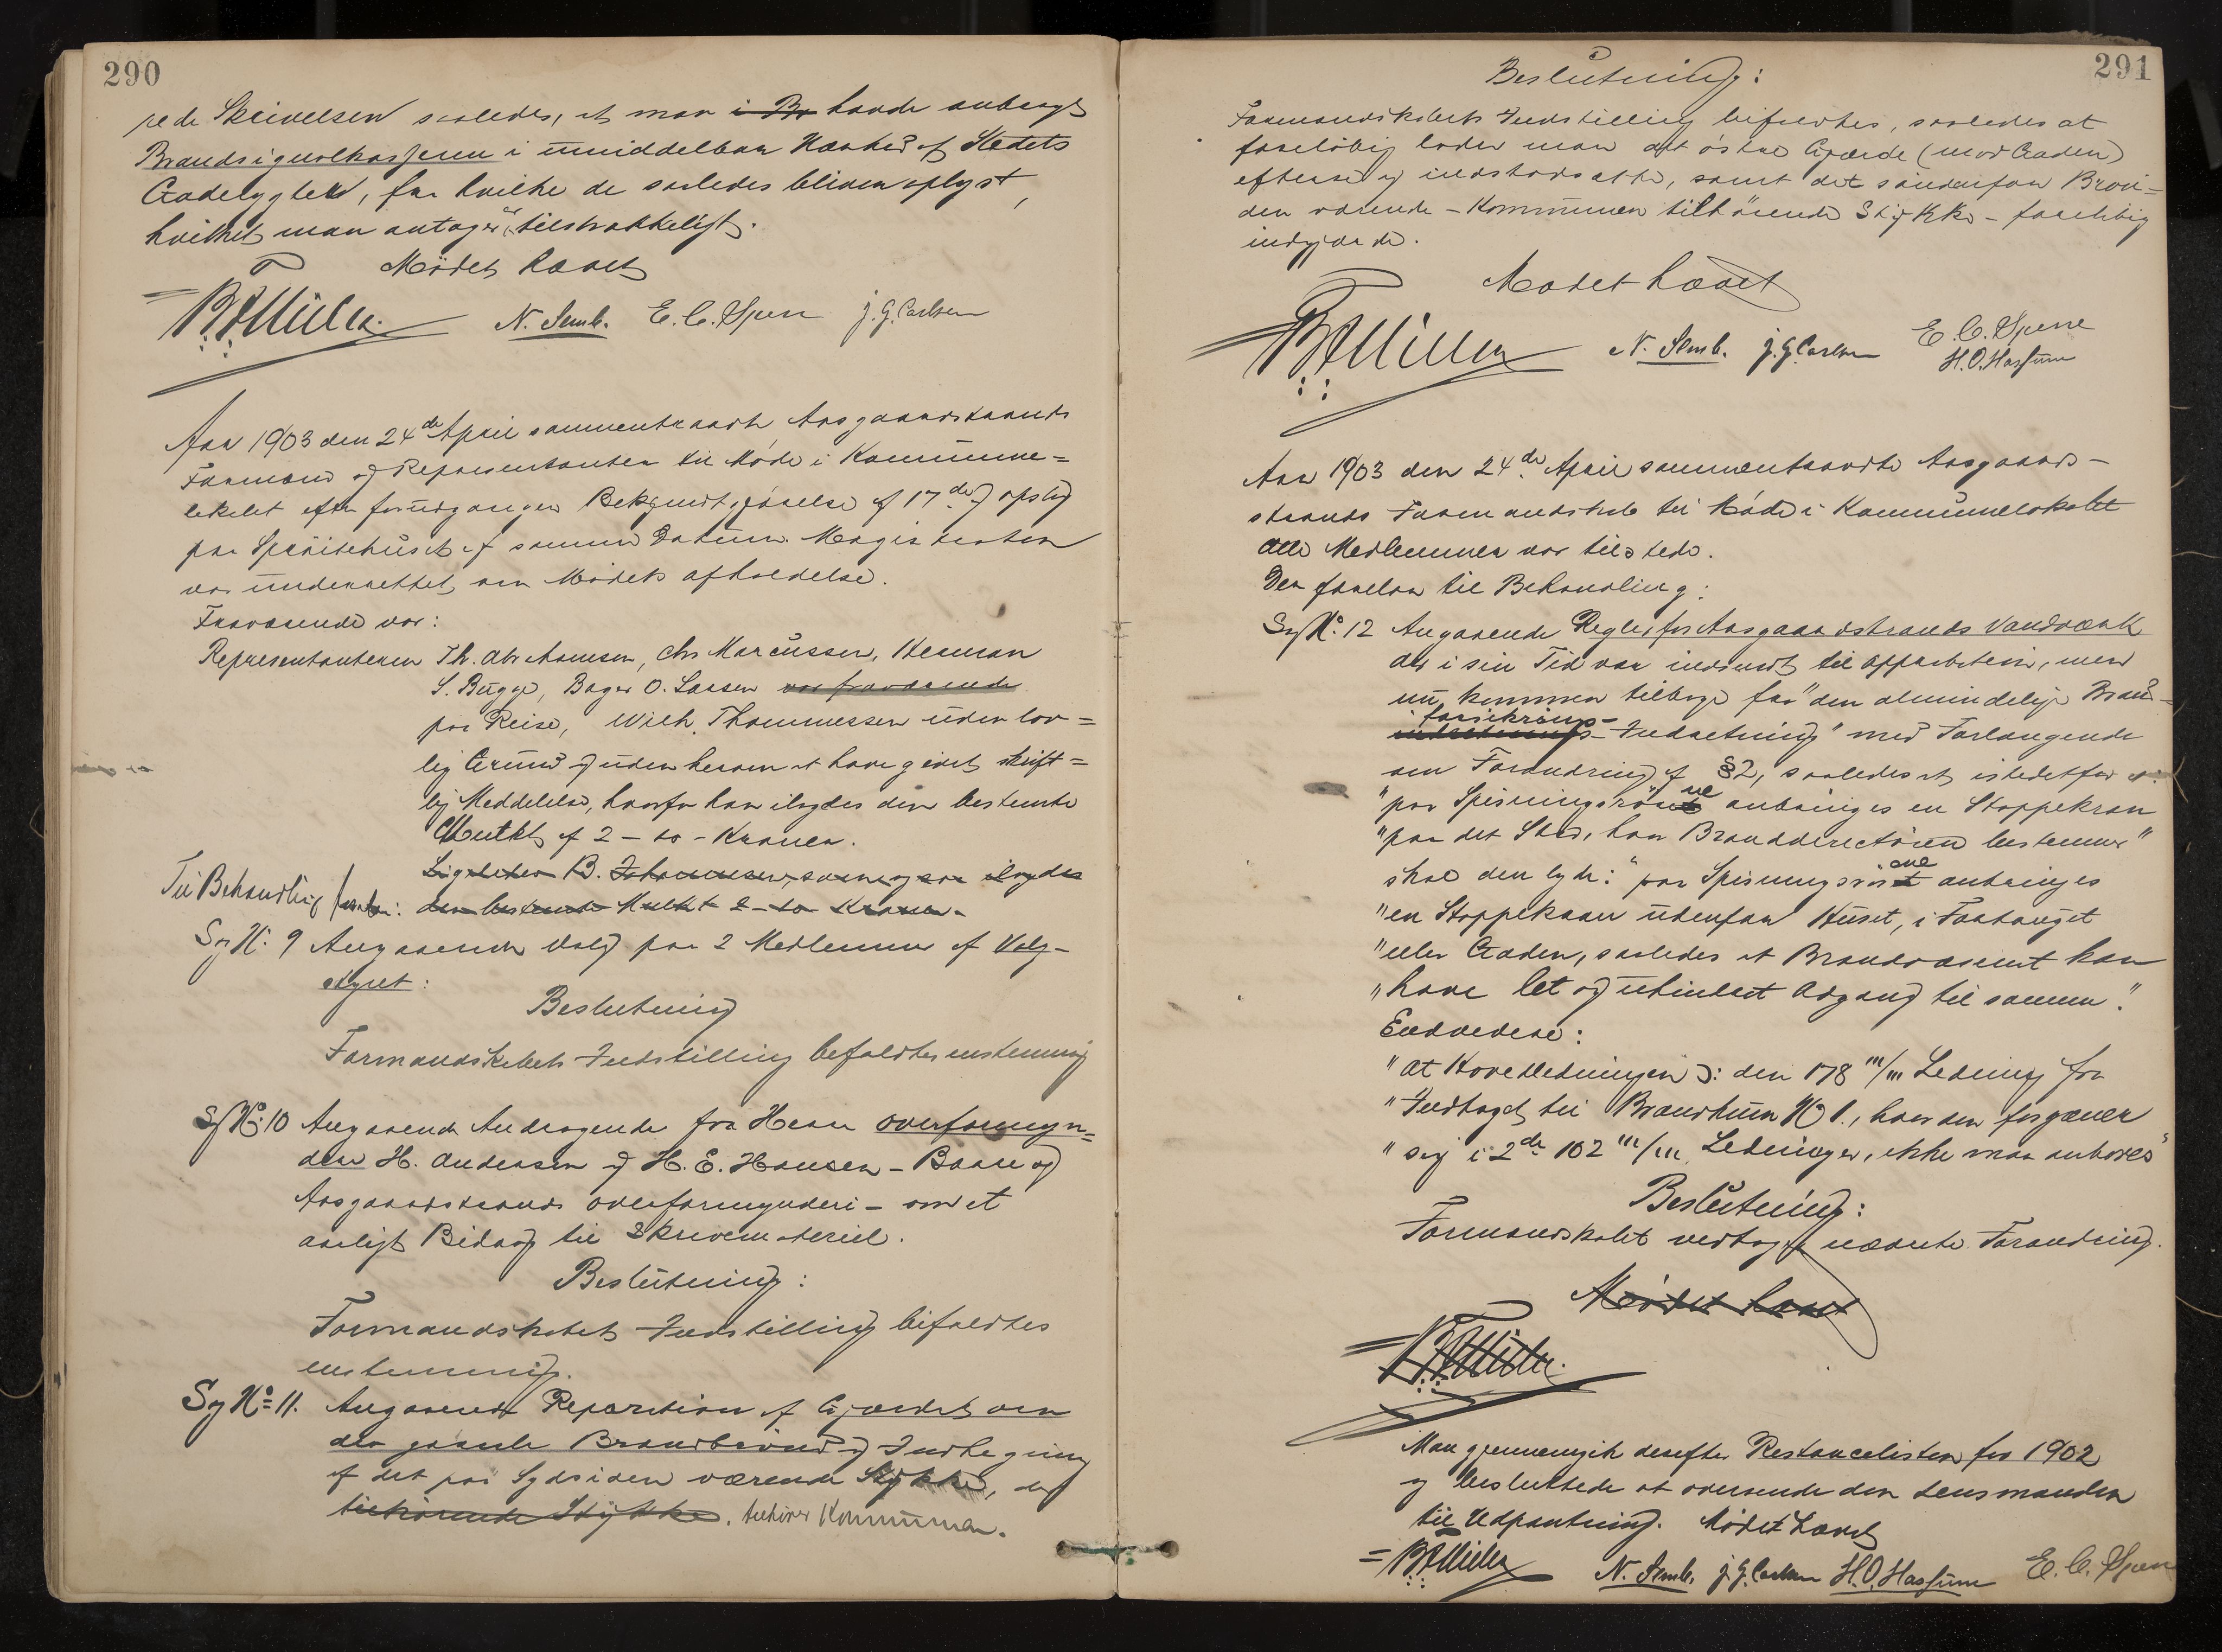 290
pede Skrivelsen saaledes, at man i Br havde anbragt
Brandsignalkassjerne i umiddelbar Nærhed af Stedets
Gadelygter, fra hvilke de saaledes bliver oplyst,
hvilket man antager er tilstrækkeligt.
Mødet hævet
N. Semb. E. C. Sperre J. G. Carlsen
Aar 1903 den 24de April sammentraadte Aasgaardstrands
Formænd og Repræsentanter til Møde i Kommune=
lokalet efter forudgangen Bekjendtgjørelse af 17de og opslag
paa Sprøitehuset af samme Datum. Magistraten
var underrettet om Mødets afholdelse.
Fraværende var:
Repræsentanterne Th. Abrahamsen, Chr Marcussen, Herman
S. Bugge, Bager O. Larsen var fraværende
paa Reise, Wilh. Thommessen uden lov=
lig Grund og uden herom at have givet skrift=
lig Meddelelse, hvorfor han ilagdes den bestemte
Mulkt af 2 – to – Kroner.
Ligeledes B. Johannessen, som ogsaa ilagdes
Til Behandling forelaa: den bestemte Mulkt 2 – to Kroner.
Sag No. 9 Angaaende Valg paa 2 Medlemmer af Valg-
styret:
Beslutning
Formandskabets Indstilling bifaldtes enstemmig
Sag No. 10 Angaaende Andragende fra Herr overformyn=
dere H. Andersen og H. E. Hansen – Borre og
Aasgaardstrands overformynderi – om et
aarligt Bidrag til Skrivemateriel.
Beslutning:
Formandskabets Indstilling bifaldtes
enstemmig.
Sag No. 11. Angaaende Reparation af Gjærdet om
den gamle Brandbrønd og Indhegning
af det paa Sydsiden værende Stykke, der
tilhørende Stykke. tilhører Kommunen.
291
Beslutning:
Formandskabets Indstilling bifaldtes, saaledes at
foreløbig lader man det østre Gjærde (mod Gaden)
efterse og indstandsætte, samt det søndenfor Brøn=
den værende – Kommunen tilhørende Stykke – foreløbig
indgjærde.
Mødet hævet
N. Semb. J. G. Carlsen E. C. Sperre
H. O. Hassum
Aar 1903 den 24de April sammentraadte Aasgaard-
strands Formandskab til Møde i Kommunelokalet
Alle Medlemmer var tilstede.
Der forelaa til Behandling:
Sag No. 12 Angaaende Regler for Aasgaardstrands Vandværk
der i sin Tid var indsendt til Approbation, men
nu kommen tilbage fra "den almindelige Brand-
forsikrings-
Indretning" med Forlangende
om Forandring af § 2, saaledes at istedetfor at
"paa Spisningsrørene anbringes en Stoppekran
"paa det Sted, hvor Branddirectøren bestemmer"
skal den lyde: "paa Spisningsrørene anbringes
"en Stoppekran udenfor Huset, i Fortauget
"eller Gaden, saaledes at Brandvæsenet kan
"have let og uhindret Adgang til samme."
Endvidere:
"at Hovedledningen ɔ: den 178 m/m Ledning fra
"Indtaget til Brandkum No 1., hvor den forgrener
"sig i 2de 102 m/m Ledninger, ikke maa anbores"
Beslutning:
Formandskabet vedtog nævnte Forandring.
Mødet hævet
Man gjennemgik derefter Restancelisten for 1902
og besluttede at oversende den Lensmanden
til Udpantning. Mødet hævet
N. Semb. J. G. Carlsen H. O. Hassum E. C. Sperre